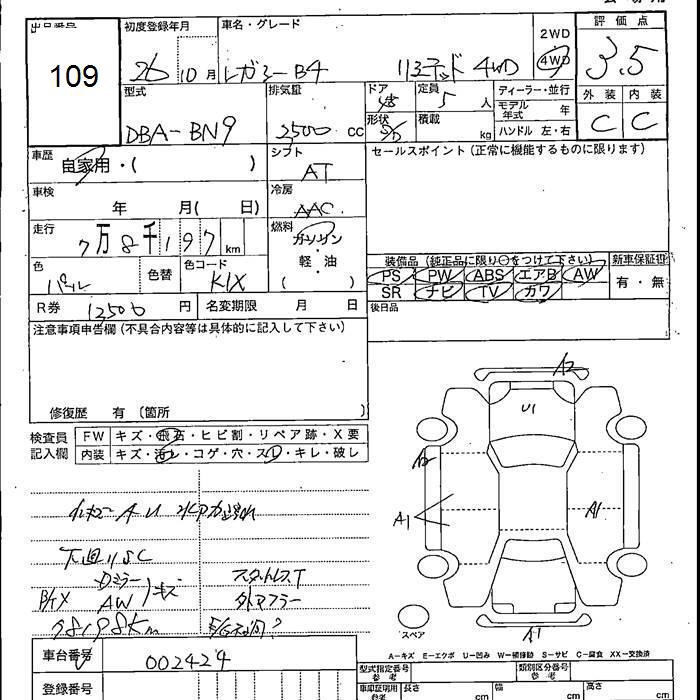 出品番号
109
初度登録年月
26 10月
車名・グレード
レガシーB4 リミテッド 4WD
2WD
4WD
評価点
3.5
外装 内装
C C
型式
DBA-BN9
排気量
2500 CC
ドア
形状
定員
5 人
積載
kg
ディーラー・並行
モデル年式 年
ハンドル 左・右
車歴
自家用・( )
シフト
AT
セールスポイント(正常に機能するものに限ります)
車検
年 月( 日)
冷房
AAC
走行
7万8千197 km
燃料
ガソリン・
軽・油
( )
色
パール
色替
色コード
K1X
装備品(純正品に限り○をつけて下さい)
PS PW ABS エアB AW
SR ナビ TV カワ
新車保証書
有・無
R券
12500 円
名変期限 月 日
後日品
注意事項申告欄(不具合内容等は具体的に記入して下さい)
修復歴 有(箇所 )
検査員
記入欄
FW キズ・飛石・ヒビ割・リペア跡・X要
内装 キズ・汚レ・コゲ・穴・スレ・キレ・破レ
A2
U1
A2
A1
A1
A1
スペア
下廻りSC
Dミラー
AW
キズ
スタットレスT
外マフラー
78198Km
車台番号
002424
登録番号
A-キズ E-エクボ U-凹み W-補修跡 S-サビ C-腐食 XX-交換済
型式指定番号
参考
類別区分番号
参考
車庫証明用
参考
長さ cm
幅 cm
高さ cm